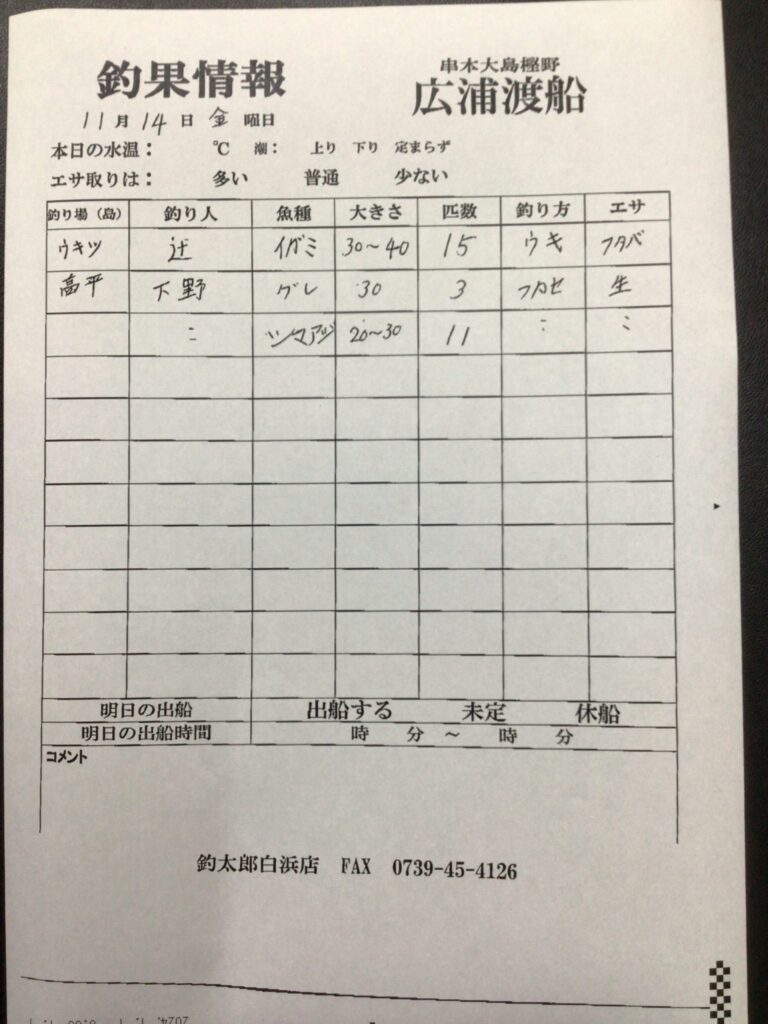 釣果情報
串本大島樫野
広浦渡船
11月 14日 金曜日
本日の水温： ℃ 潮： 上り 下り 定まらず
エサ取りは： 多い 普通 少ない
釣り場（島） 釣り人 魚種 大きさ 匹数 釣り方 エサ
ウキツ 辻 イガミ 30～40 15 ウキ フタバ
高平 下野 グレ 30 3 フカセ 生
〃 ツマアジ 20～30 11 〃 〃
明日の出船 出船する 未定 休船
明日の出船時間 時 分 ～ 時 分
コメント
釣太郎白浜店 FAX 0739-45-4126